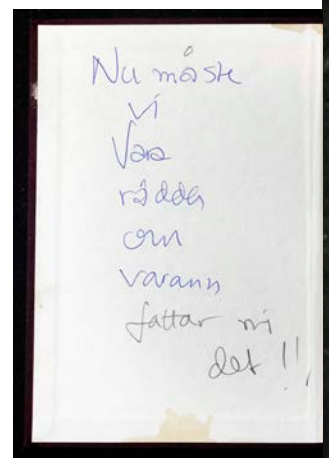 Nu måste
vi
Vara
rädda
om
varann
fattar ni
det !!